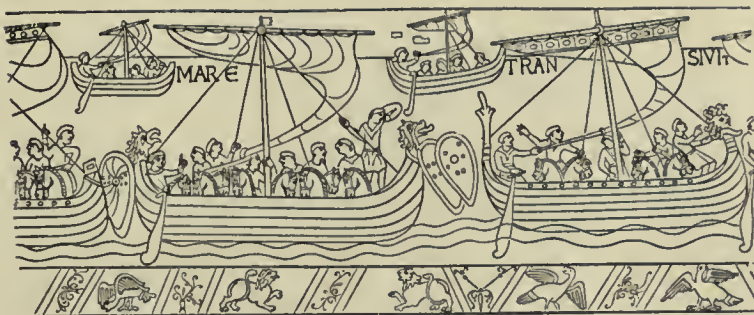 MARE TRAN SIVIT